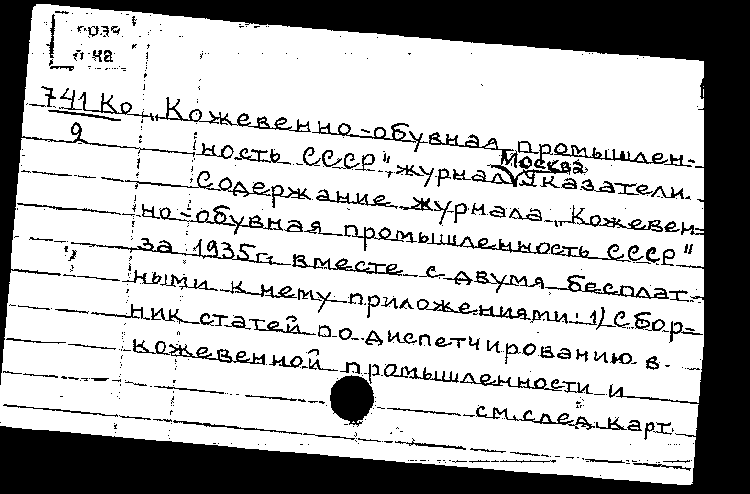 741 Ко „Кожевенно-обувная промышлен-
9
ность СССР", журнал, Москва. Указатели.
Содержание журнала „Кожевен-
но-обувная промышленность СССР"
за 1935г. вместе с двумя бесплат-
ными к нему приложениями: 1) Сбор-
ник статей по диспетчированию в
кожевенной промышленности и
см. след. карт.